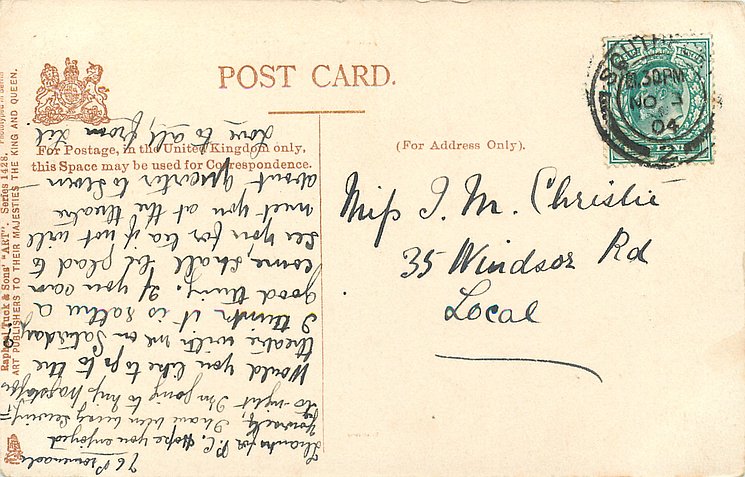 POST CARD.
For Postage, in the United Kingdom only,
this Space may be used for Correspondence.
(For Address Only).
Raphael Tuck & Sons' "ART". Series 1428.
ART PUBLISHERS TO THEIR MAJESTIES THE KING AND QUEEN.
SOUTH
8.30PM
NO 3
04
2
Miss J. M. Christie
35 Windsor Rd
Local
76 Promenade
Thanks for P.C. Hope you enjoyed
yourself, I have been busy sewing
to-night I'm going to Miss
Would you like to go to the
theatre with me on Saturday
I think it is rather a
good thing. If you can
come, shall be glad to
see you for tea if not will
meet you at the theatre
about quarter to seven
Love to all from Lil